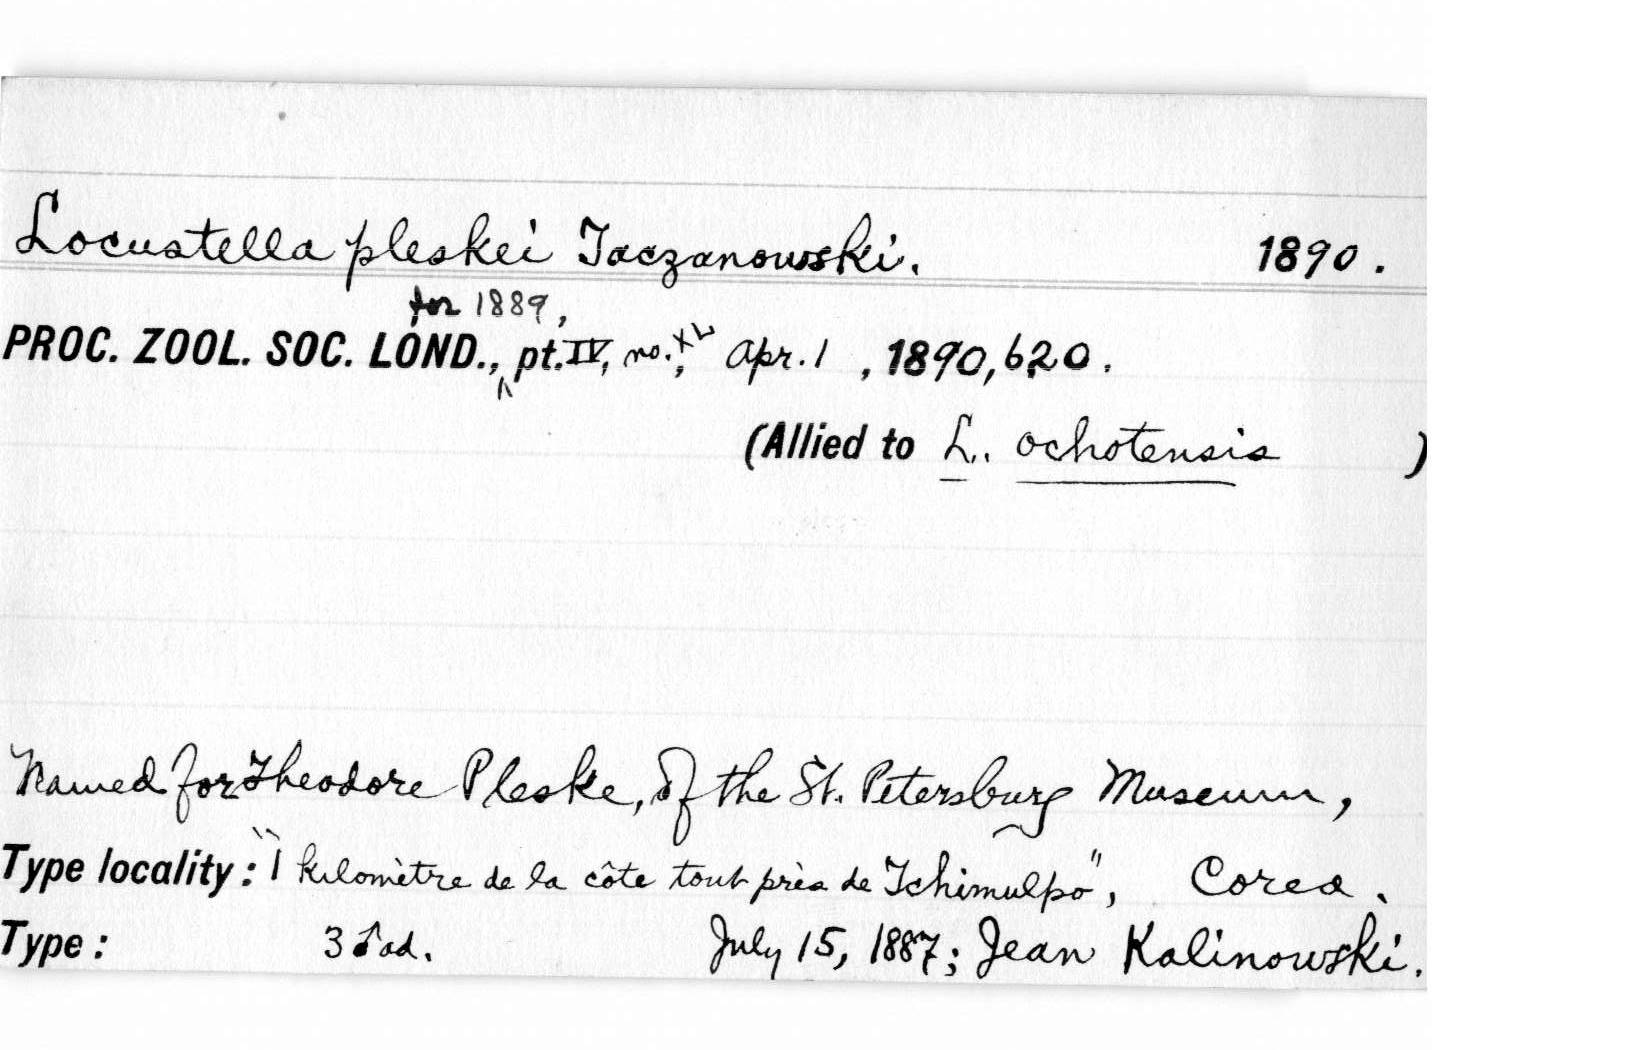 Locustella pleskei Taczanowski. 1890.
for 1889,
PROC. ZOOL. SOC. LOND., pt. IV, no. XL, Apr. 1, 1890, 620.
(Allied to L. ochotensis )
Named for Theodore Pleske, of the St. Petersburg Museum,
Type locality: "1 kilomètre de la côte tout près de Tchimulpo", Corea.
Type: 3 ♂ ad. July 15, 1887; Jean Kalinowski.